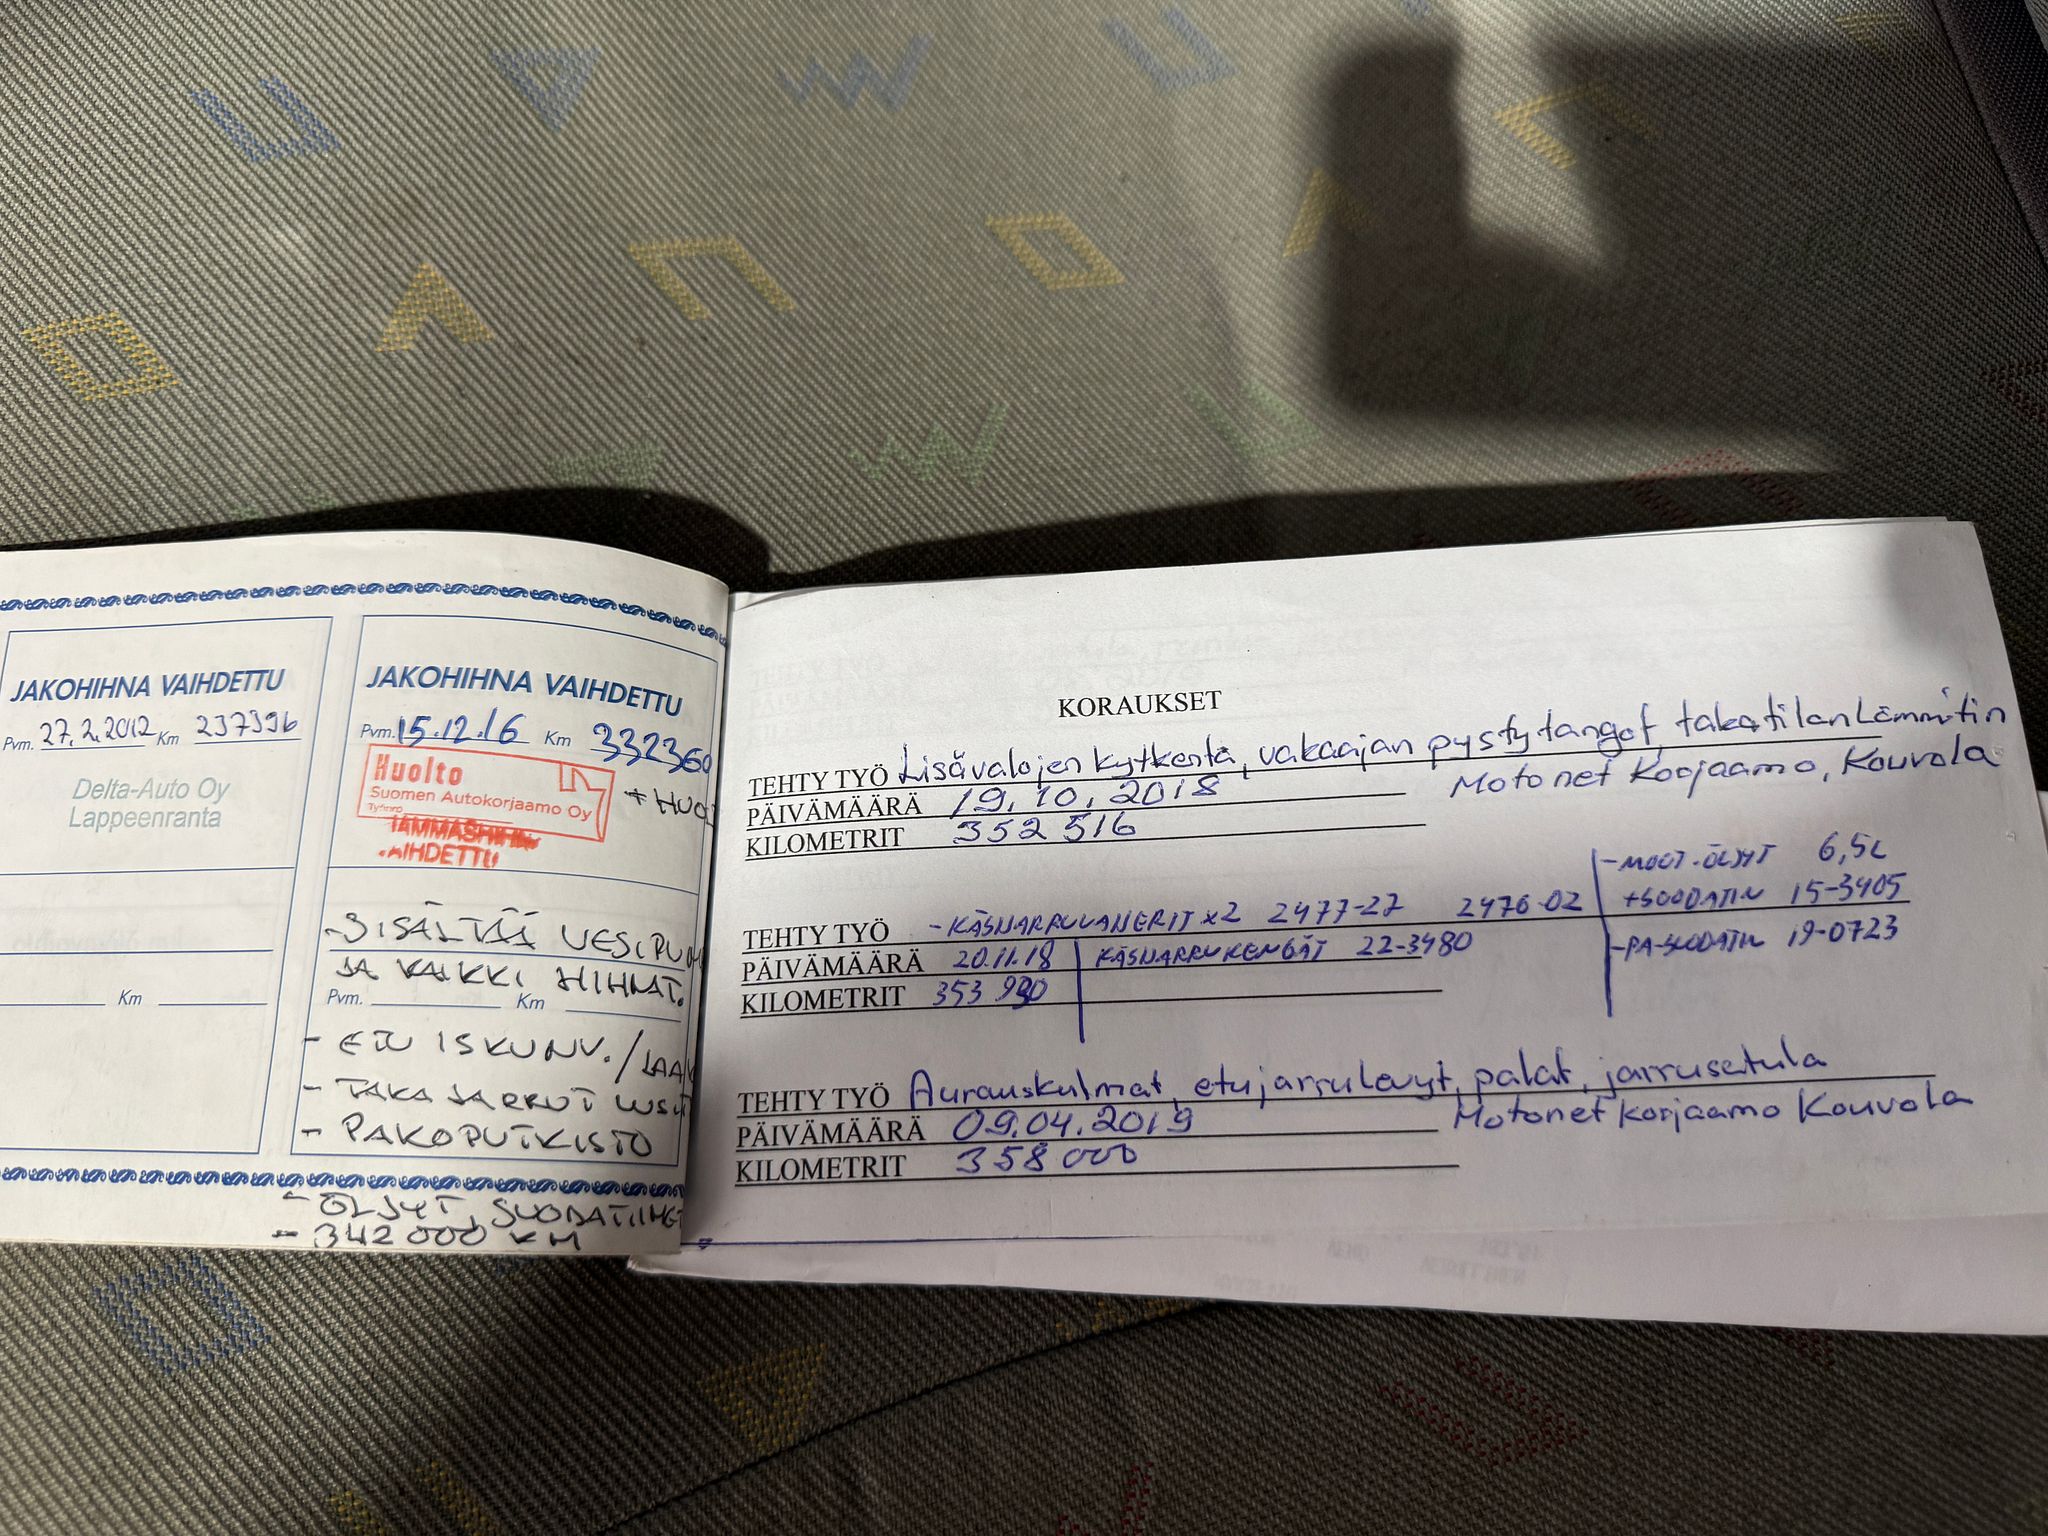 JAKOHIHNA VAIHDETTU
Pvm. 27.2.2012 Km 237396
Delta-Auto Oy
Lappeenranta
Km
JAKOHIHNA VAIHDETTU
Pvm. 15.12.16 Km 332360
Huolto
Suomen Autokorjaamo Oy
+ HUOL
AIHDETTU
- SISÄLTÄÄ VESIPU
JA KAIKKI HIHNAT.
Pvm. Km
- ETU ISKUNV. / LAA
- TAKA JARRUT UUSIT
- PAKOPUTKISTO
- ÖLJYT, SUODATIMET
- 342 000 KM
KORAUKSET
TEHTY TYÖ Lisävalojen kytkentä, vakaajan pystytangot, takatilan Lämmitin
PÄIVÄMÄÄRÄ 19.10.2018 Motonet Korjaamo, Kouvola
KILOMETRIT 352 516
- MOOT.ÖLJYT 6,5L
+SUODATIN 15-3405
TEHTY TYÖ - KÄSIJARRUVAIJERIT x2 2477-27 2476-02
PÄIVÄMÄÄRÄ 20.11.18 KÄSIJARRUKENGÄT 22-3480
- PA-SUODATIN 19-0723
KILOMETRIT 353 990
TEHTY TYÖ Aurauskulmat, etujarrulevyt, palat, jarrusatula
PÄIVÄMÄÄRÄ 09.04.2019 Motonet Korjaamo Kouvola
KILOMETRIT 358 000